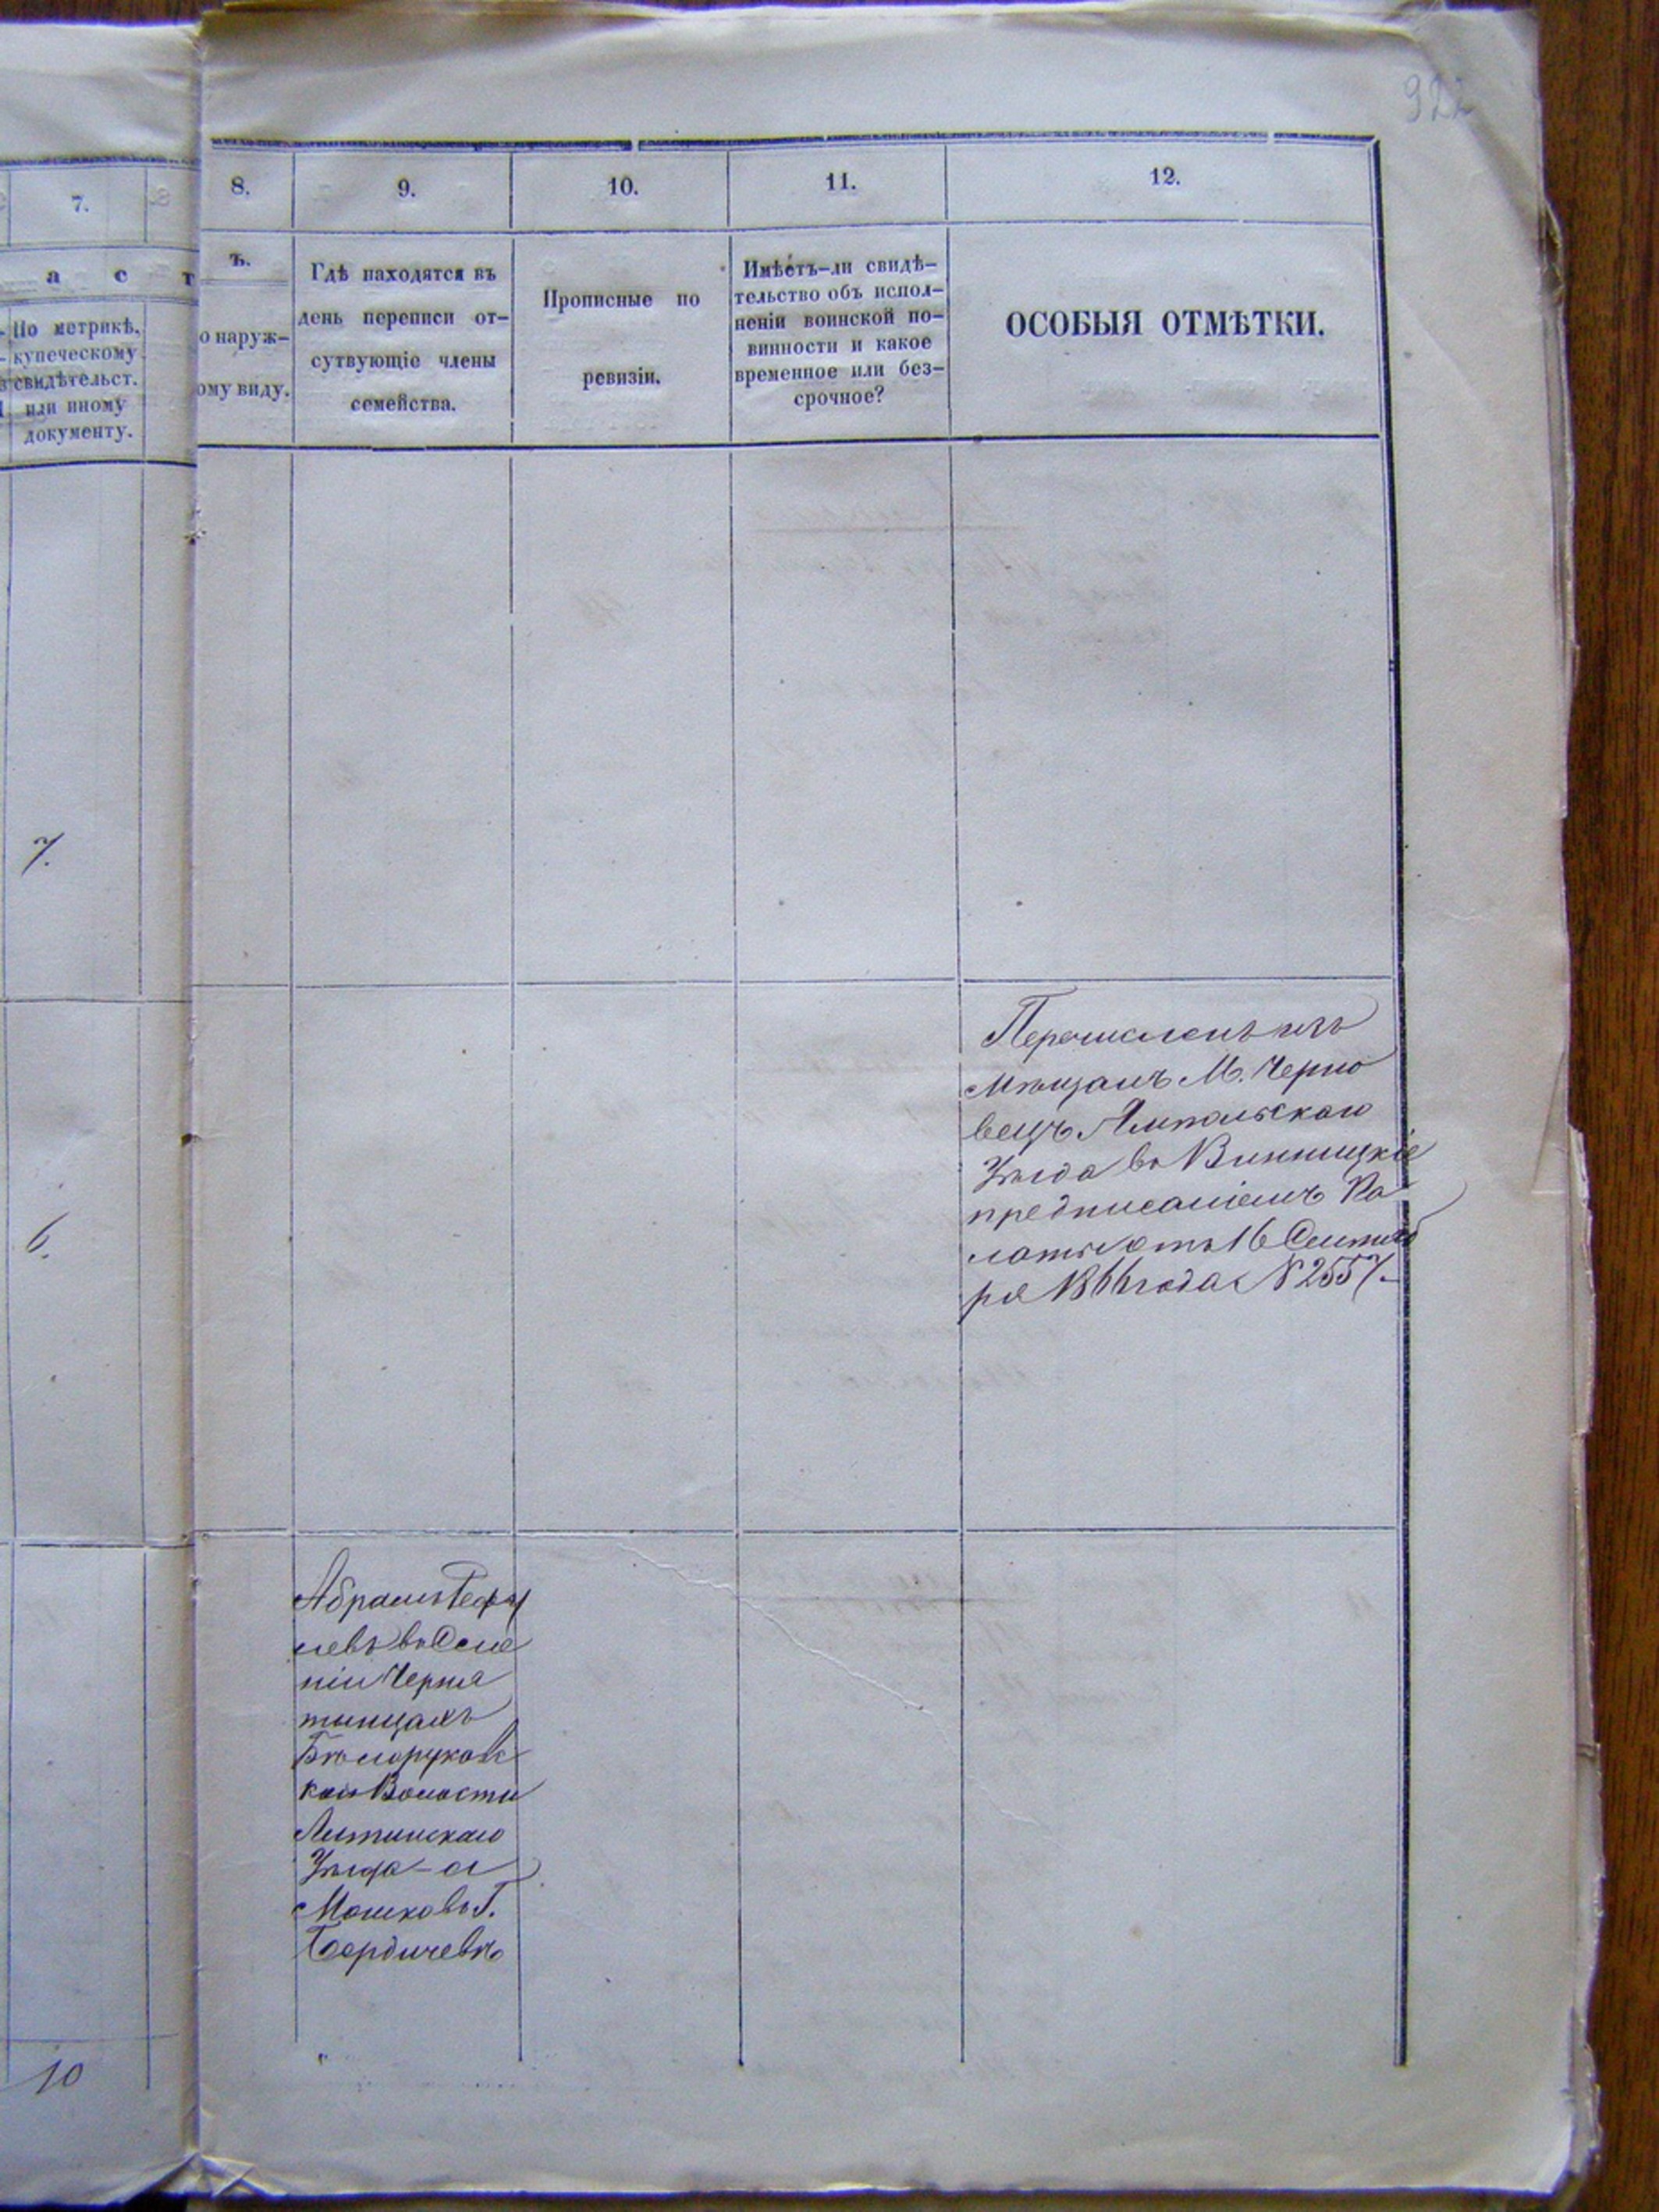 922
7.
8.
9.
10.
11.
12.
а с т
ъ.
По метрикѣ,
купеческому
свидѣтельст.
или иному
документу.
о наруж-
ому виду.
Гдѣ находятся въ
день переписи от-
сутвующіе члены
семейства.
Прописные по
ревизіи.
Имѣетъ-ли свидѣ-
тельство объ испол-
неніи воинской по-
винности и какое
временное или без-
срочное?
ОСОБЫЯ ОТМѢТКИ.
7.
Перечисленъ изъ
мѣщанъ М. Черно
вецъ Ямпольскаго
Уѣзда въ Винницкіе
предписаніемъ Па
латы отъ 16 Сентяб
ря 1866 года № 2557.
6.
Абрамъ
въ Селе
ніи Черня
тинцахъ
Бѣлоруковс
кой Волости
Литинскаго
Уѣзда - а
Мошко въ Г.
Бердичевѣ
10